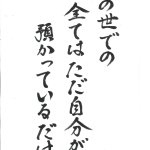 の世での
全てはただ自分が
預かっているだけ